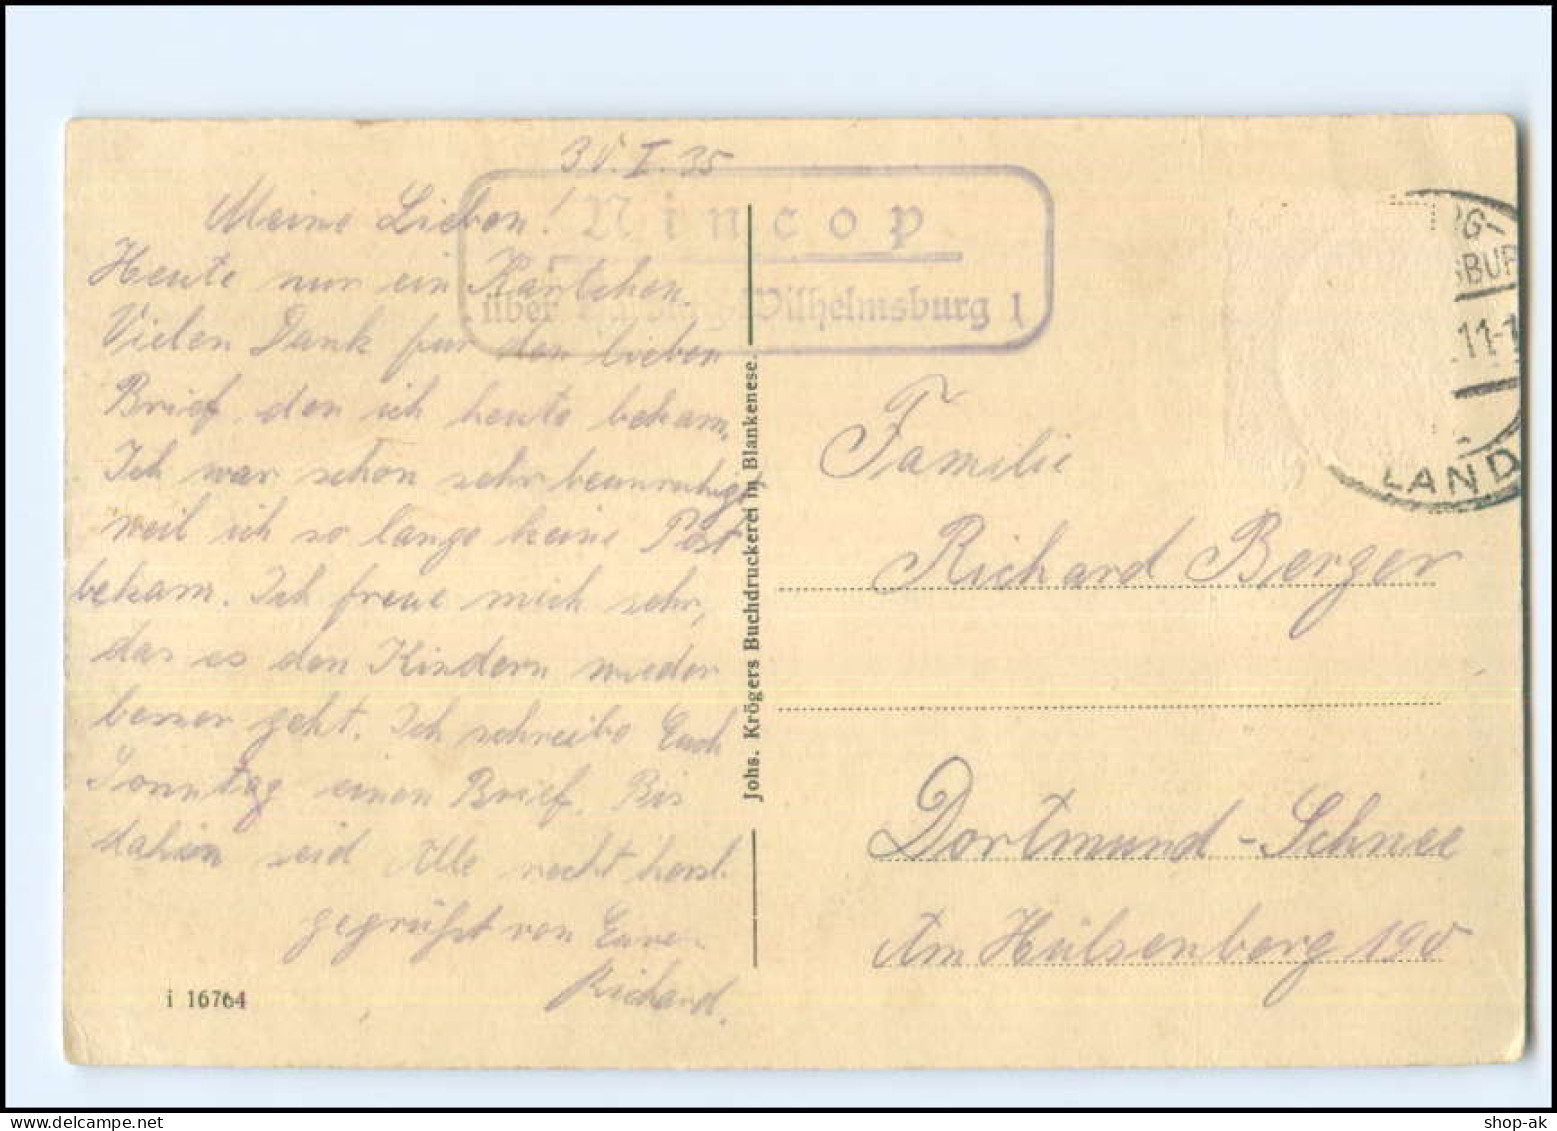 30.I.35
Meine Lieben!
Heute nur ein Kärtchen.
Vielen Dank für den lieben
Brief, den ich heute bekam.
Ich war schon sehr beunruhigt
weil ich so lange keine Post
bekam. Ich freue mich sehr,
das es den Kindern wieder
besser geht. Ich schreibe Euch
Sonntag einen Brief. Bis
dahin seid Alle recht herzl.
gegrüßt von Euren
Richard.
i 16764
Nincop
über Harburg-Wilhelmsburg 1
Johs. Krögers Buchdruckerei in Blankenese.
RG-
SBUR
11-1
LAND
Familie
Richard Berger
Dortmund-Schnee
Am Hülsenberg 190
shop-ak